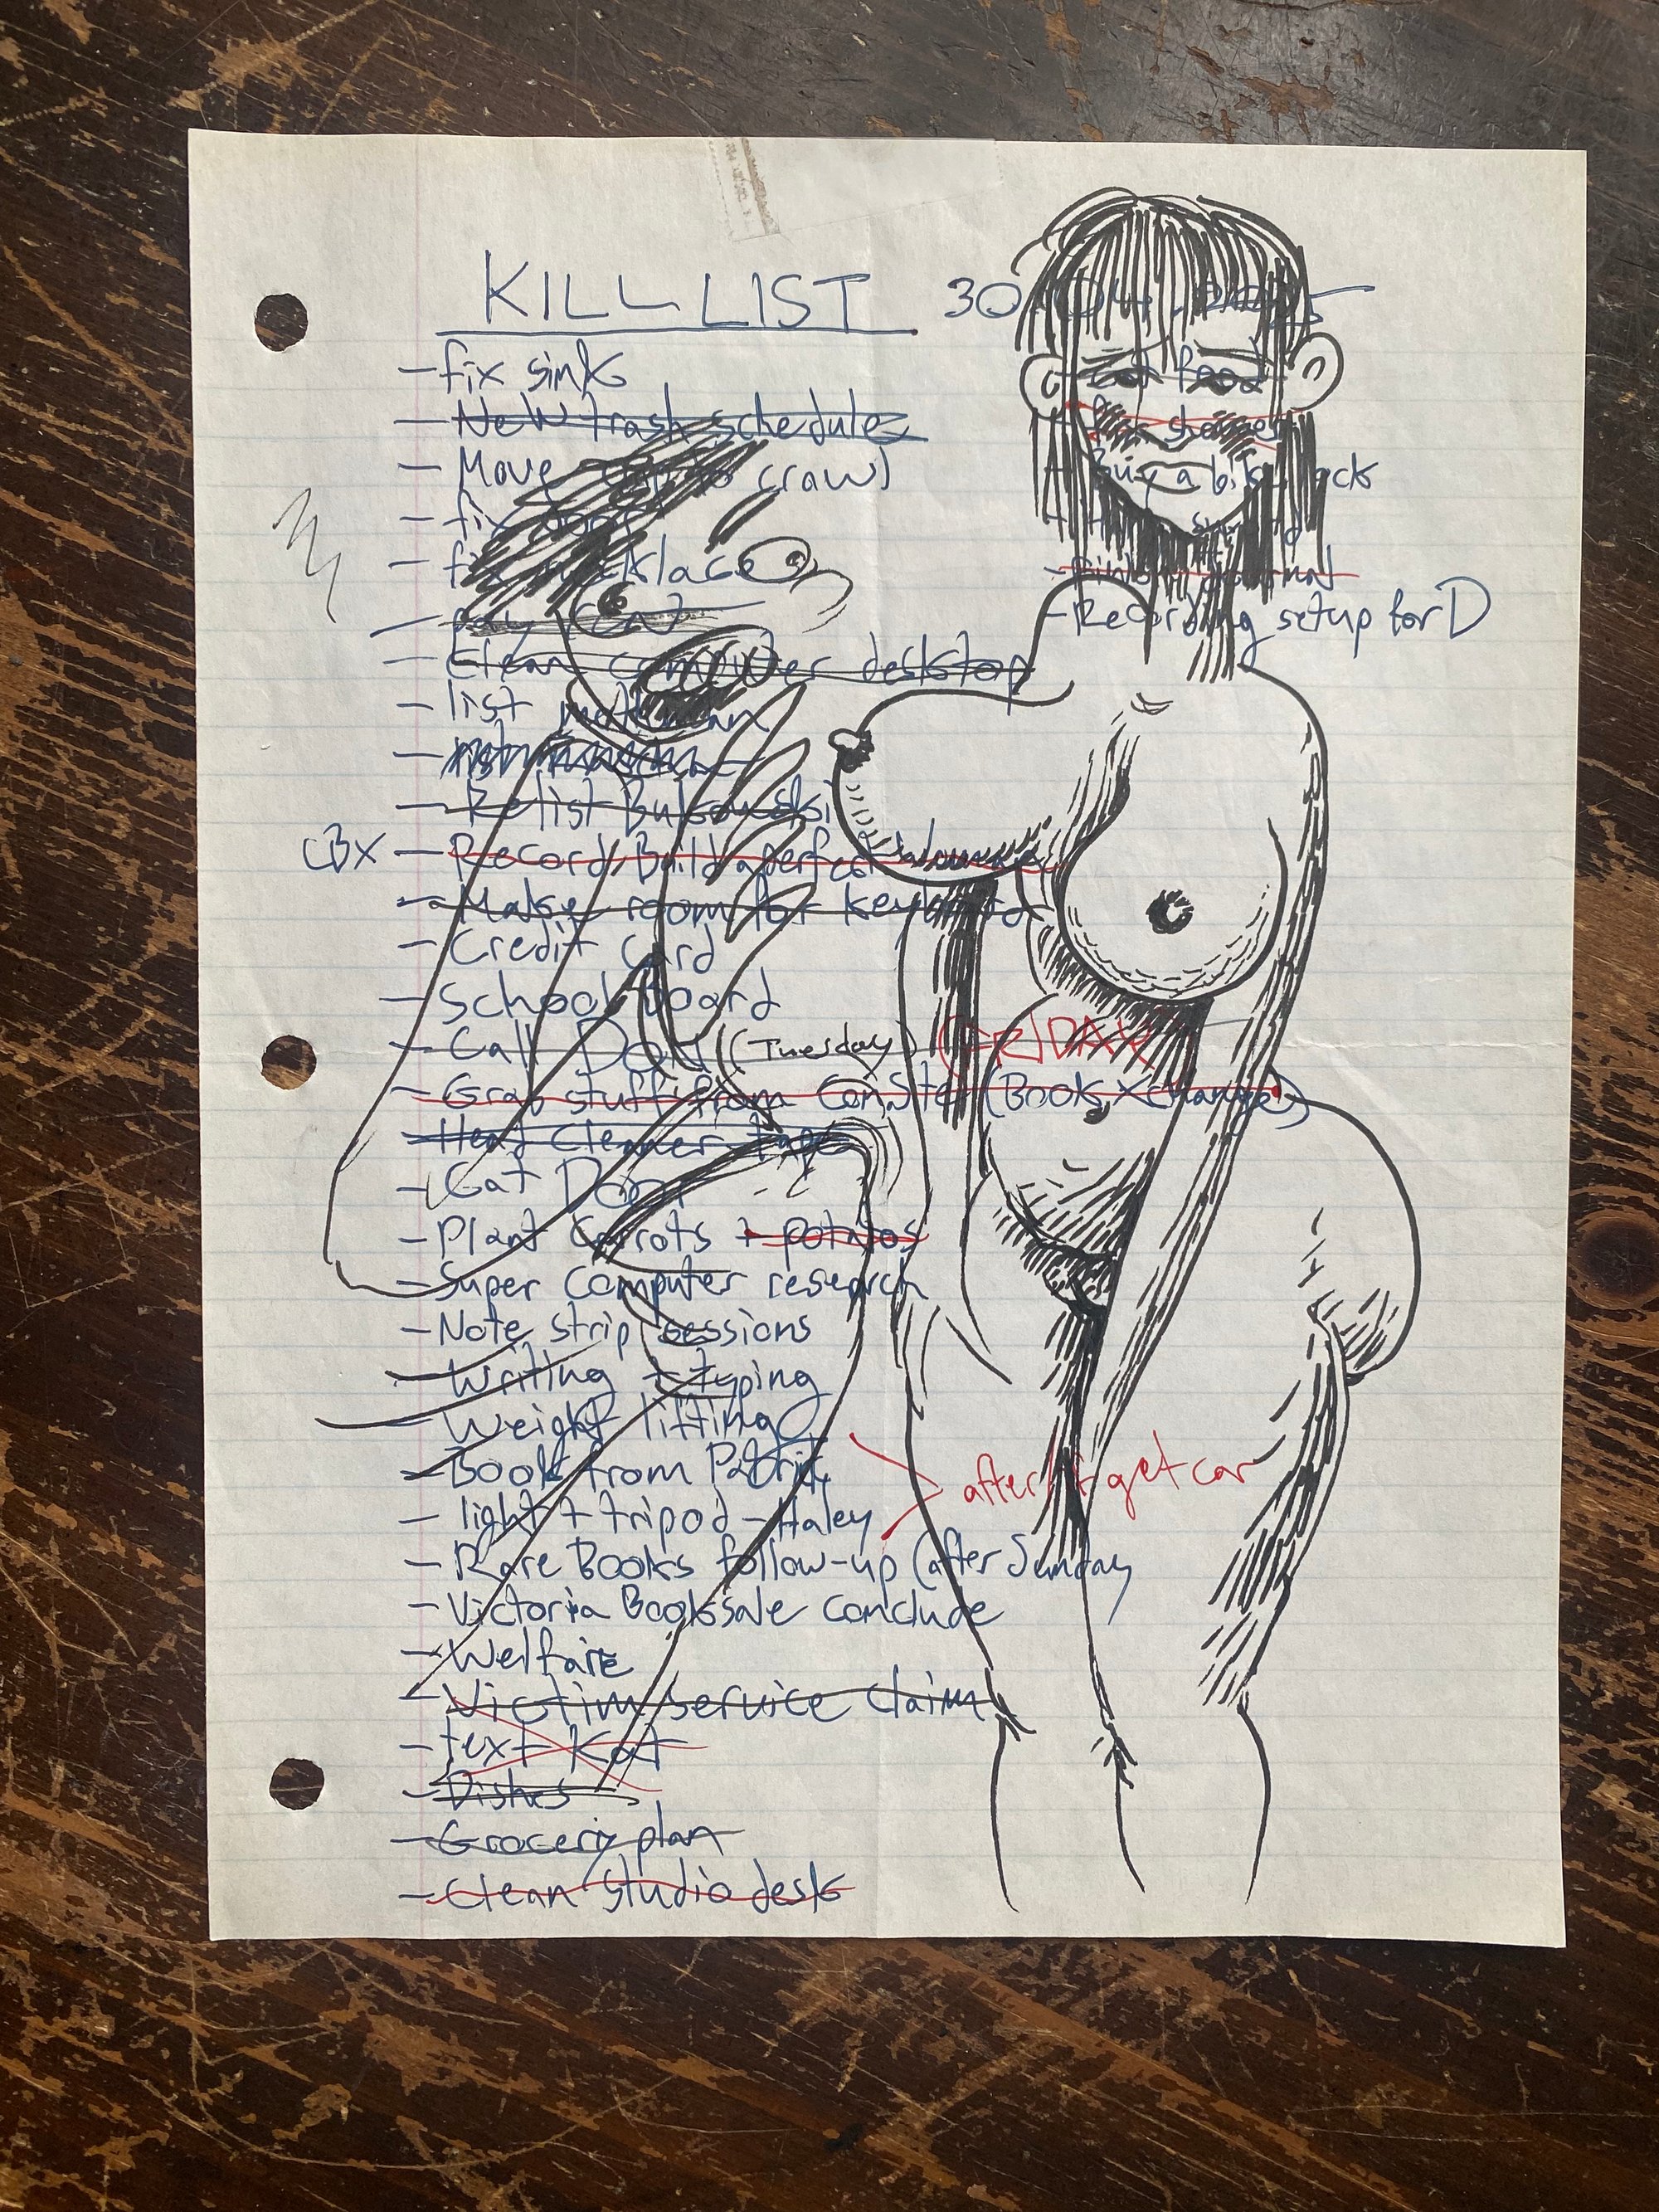 KILL LIST 30.04.2025
- fix sink
- New trash schedule
- Move to crawl
- fix door
- fix necklace
- pay rent
- Clean computer desktop
- list
- Relist Bukowski
CBX - Record Build a perfect
- Make room for keyboard
- Credit card
- School board
- Call Don (Tuesday) (FRIDAY)
- Grab stuff from (Book Xchange)
- Head cleaner tape
- Cat Door
- Plant Carrots + potatos
- Super Computer research
- Note strip sessions
- Writing + typing
- Weight lifting
- Books from Patrik
- light + tripod - Haley
> after I get car
- Rare Books follow-up (after Sunday
- Victoria Booksale conclude
- Welfare
- Victim service claim
- text Kat
- Dishes
- Grocery plan
- Clean studio desk
- cat food
- Buy a bike lock
- Recording setup for D